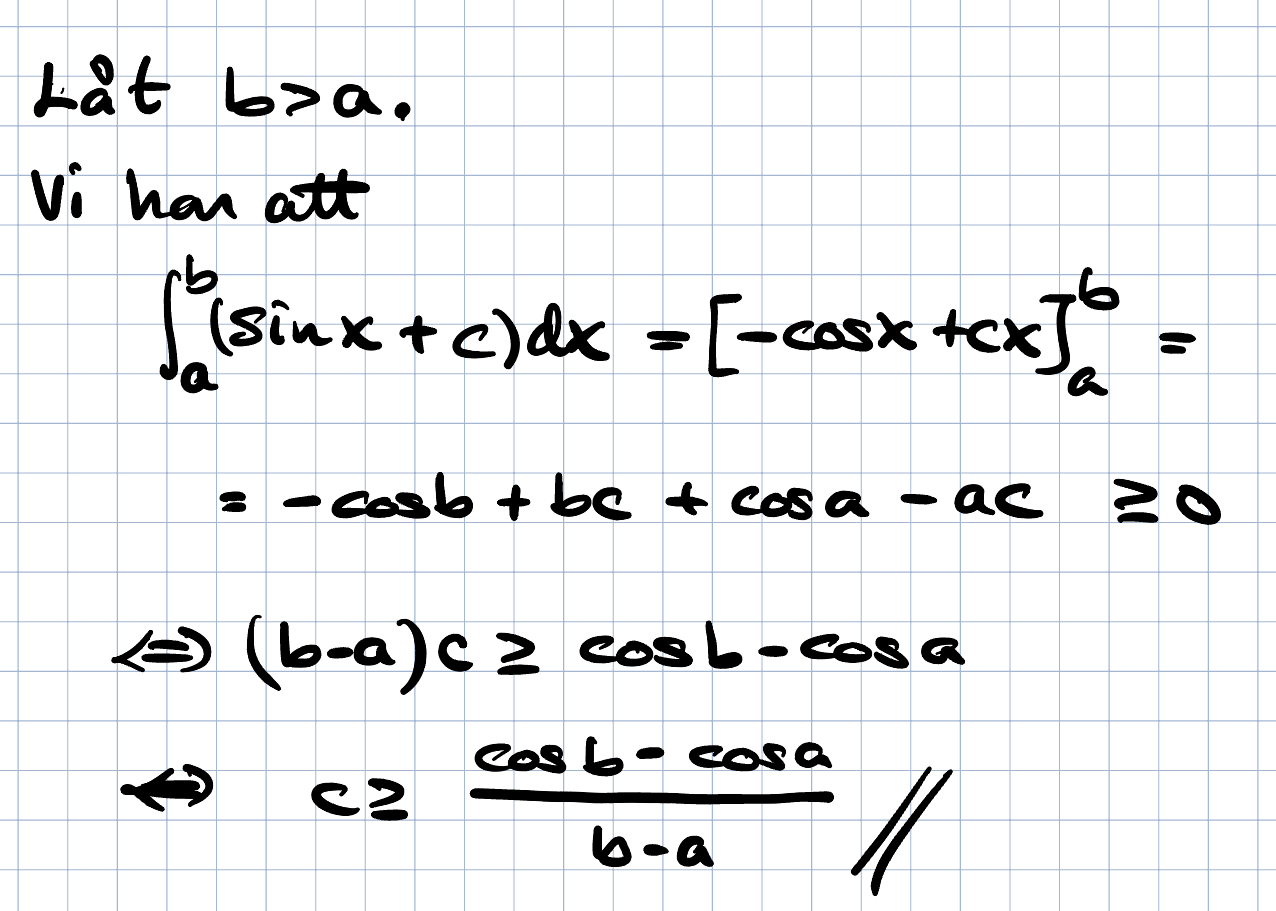 Låt b>a.
Vi har att
∫_a^b (sinx + c)dx = [-cosx +cx]_a^b =
= -cosb + bc + cosa - ac ≥0
⇔ (b-a)c ≥ cosb-cosa
⇔ c≥ \frac{cosb - cosa}{b-a} //